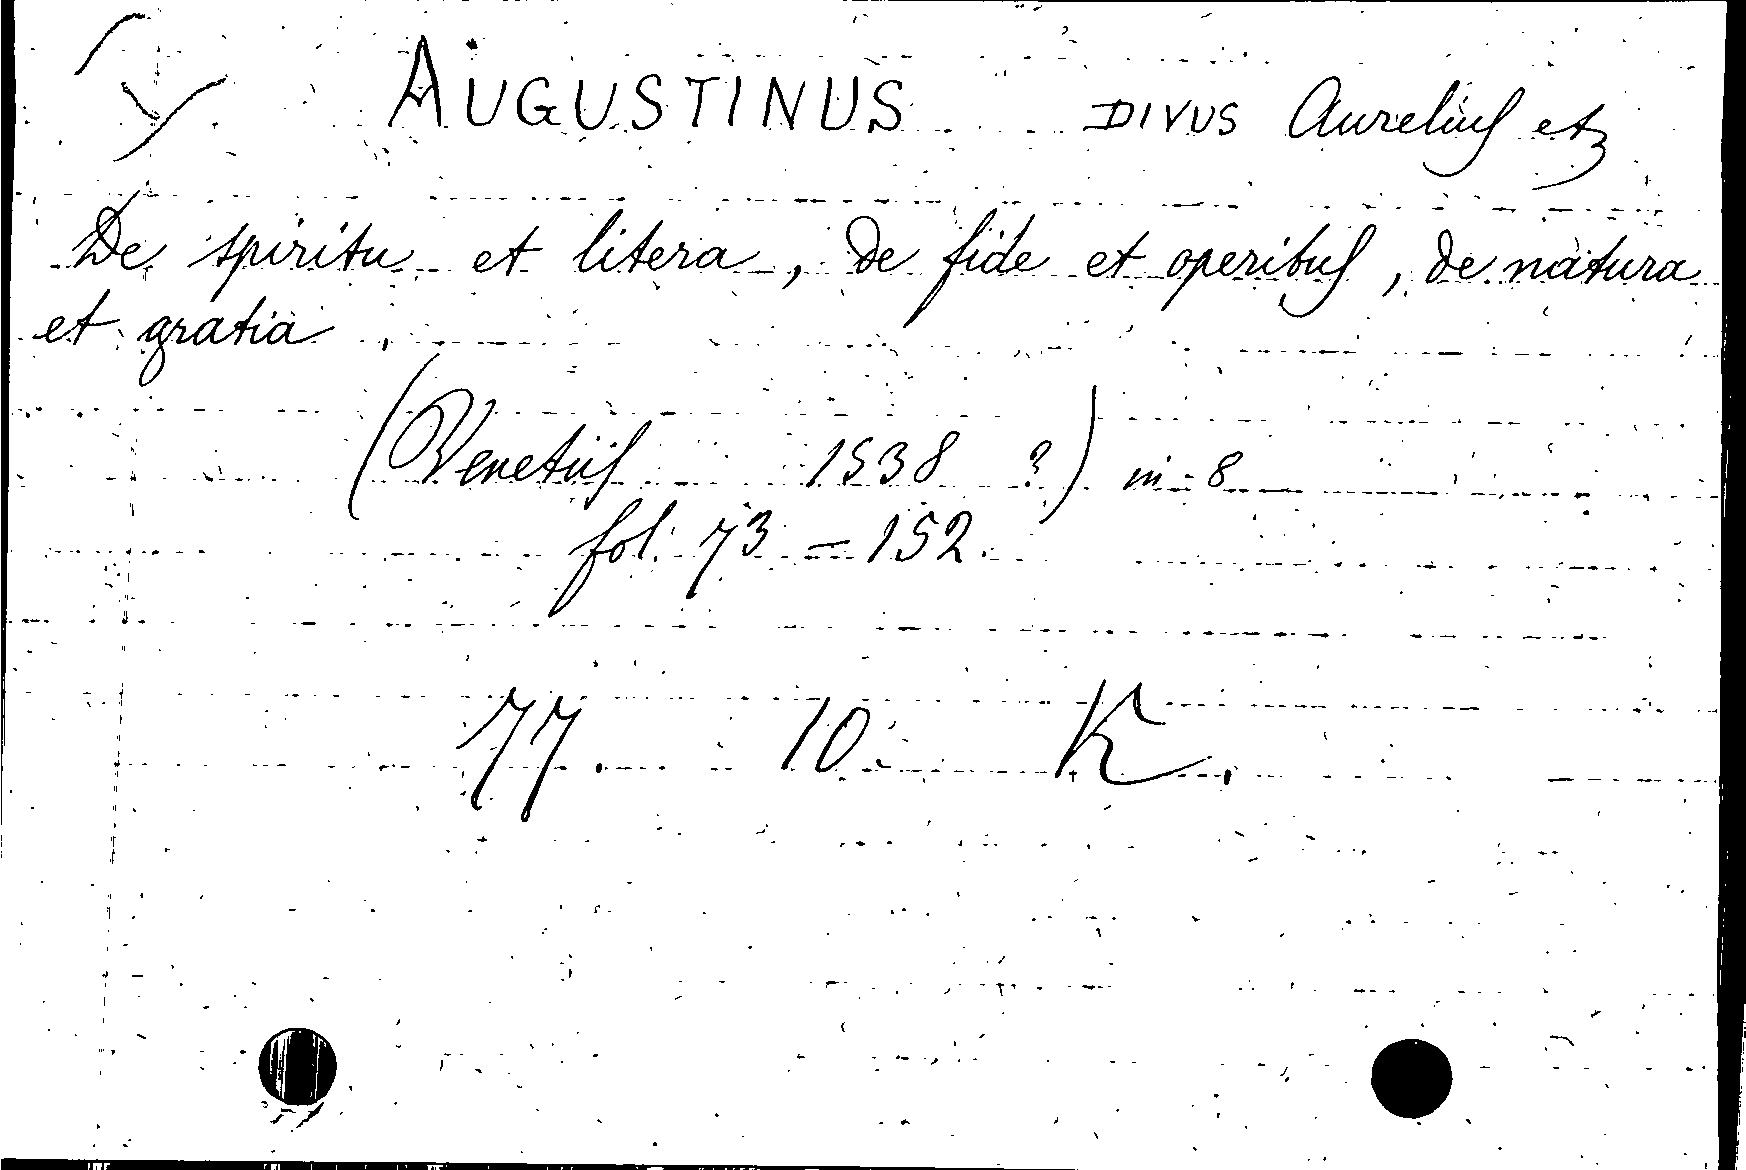 AUGUSTINUS DIVUS Aurelius etz
De spiritu et litera, de fide et operibus, de natura
et gratia
(Venetiis 1538 ?) in 8
fol. 73 - 152.
77. 10. K.